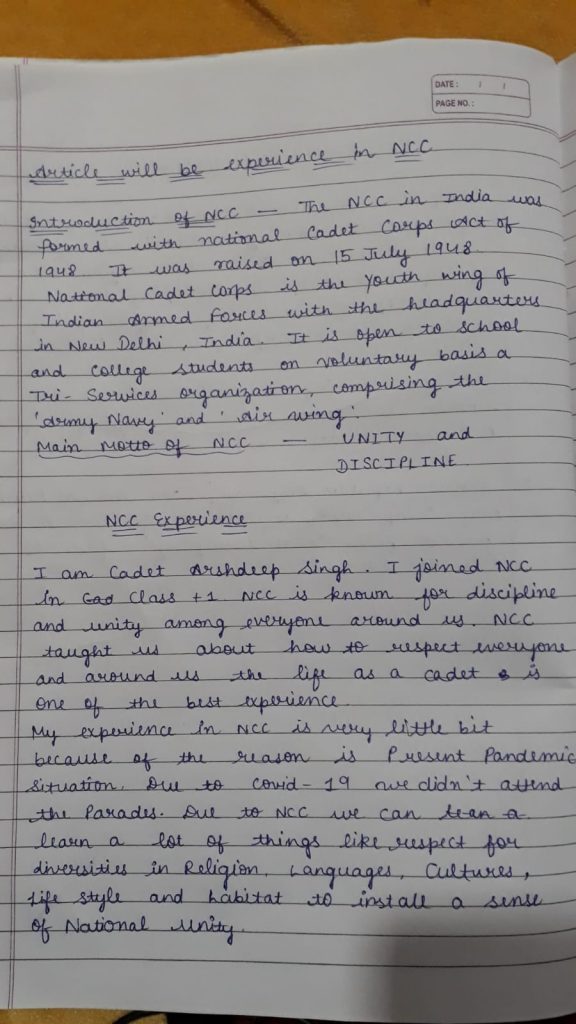 DATE: / /
PAGE NO.:
Article will be experience in NCC
Introduction of NCC — The NCC in India was
formed with national Cadet Corps Act of
1948 It was raised on 15 July 1948.
National Cadet Corps is the youth wing of
Indian Armed Forces with the headquarters
in New Delhi, India. It is open to school
and college students on voluntary basis a
Tri-Services organization, comprising the
'Army Navy' and 'Air wing'.
Main Motto of NCC — UNITY and
DISCIPLINE
NCC Experience
I am Cadet Arshdeep Singh. I joined NCC
In Class +1. NCC is known for discipline
and unity among everyone around us. NCC
taught us about how to respect everyone
and around us the life as a cadet is
one of the best experience.
My experience in NCC is very little bit
because of the reason is Present Pandemic
Situation. Due to Covid-19 we didn't attend
the Parades. Due to NCC we can
learn a lot of things like respect for
diversities in Religion, Languages, Cultures,
life style and habitat to install a sense
of National Unity.